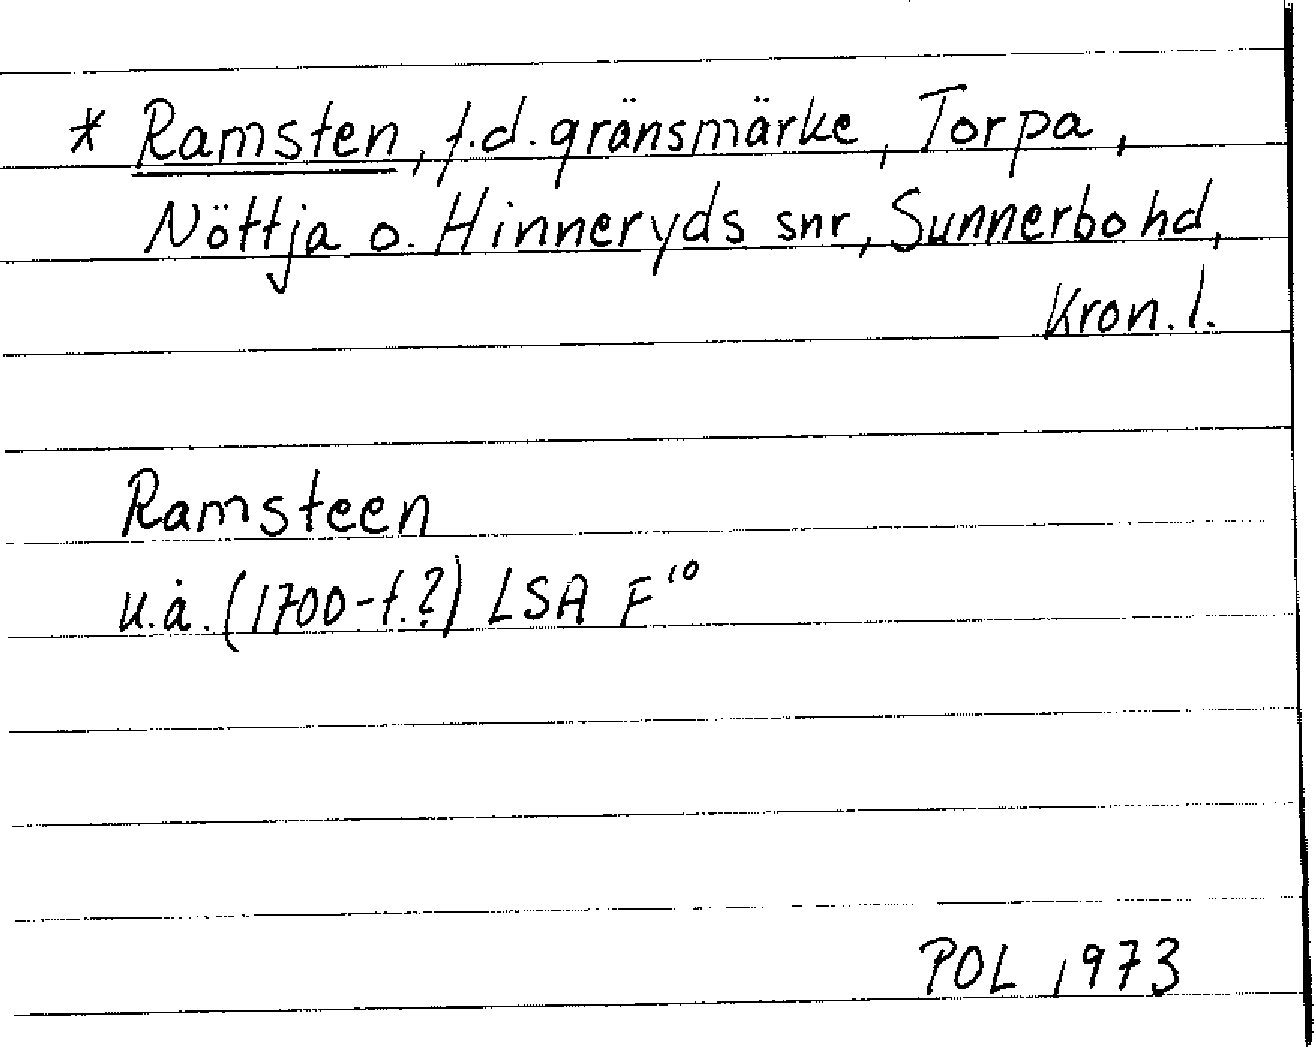 * Ramsten, f.d. gränsmärke, Torpa,
Nöttja o. Hinneryds snr, Sunnerbo hd,
Kron. l.
Ramsteen
u.å. (1700-t.?) LSA F¹⁰
POL 1973